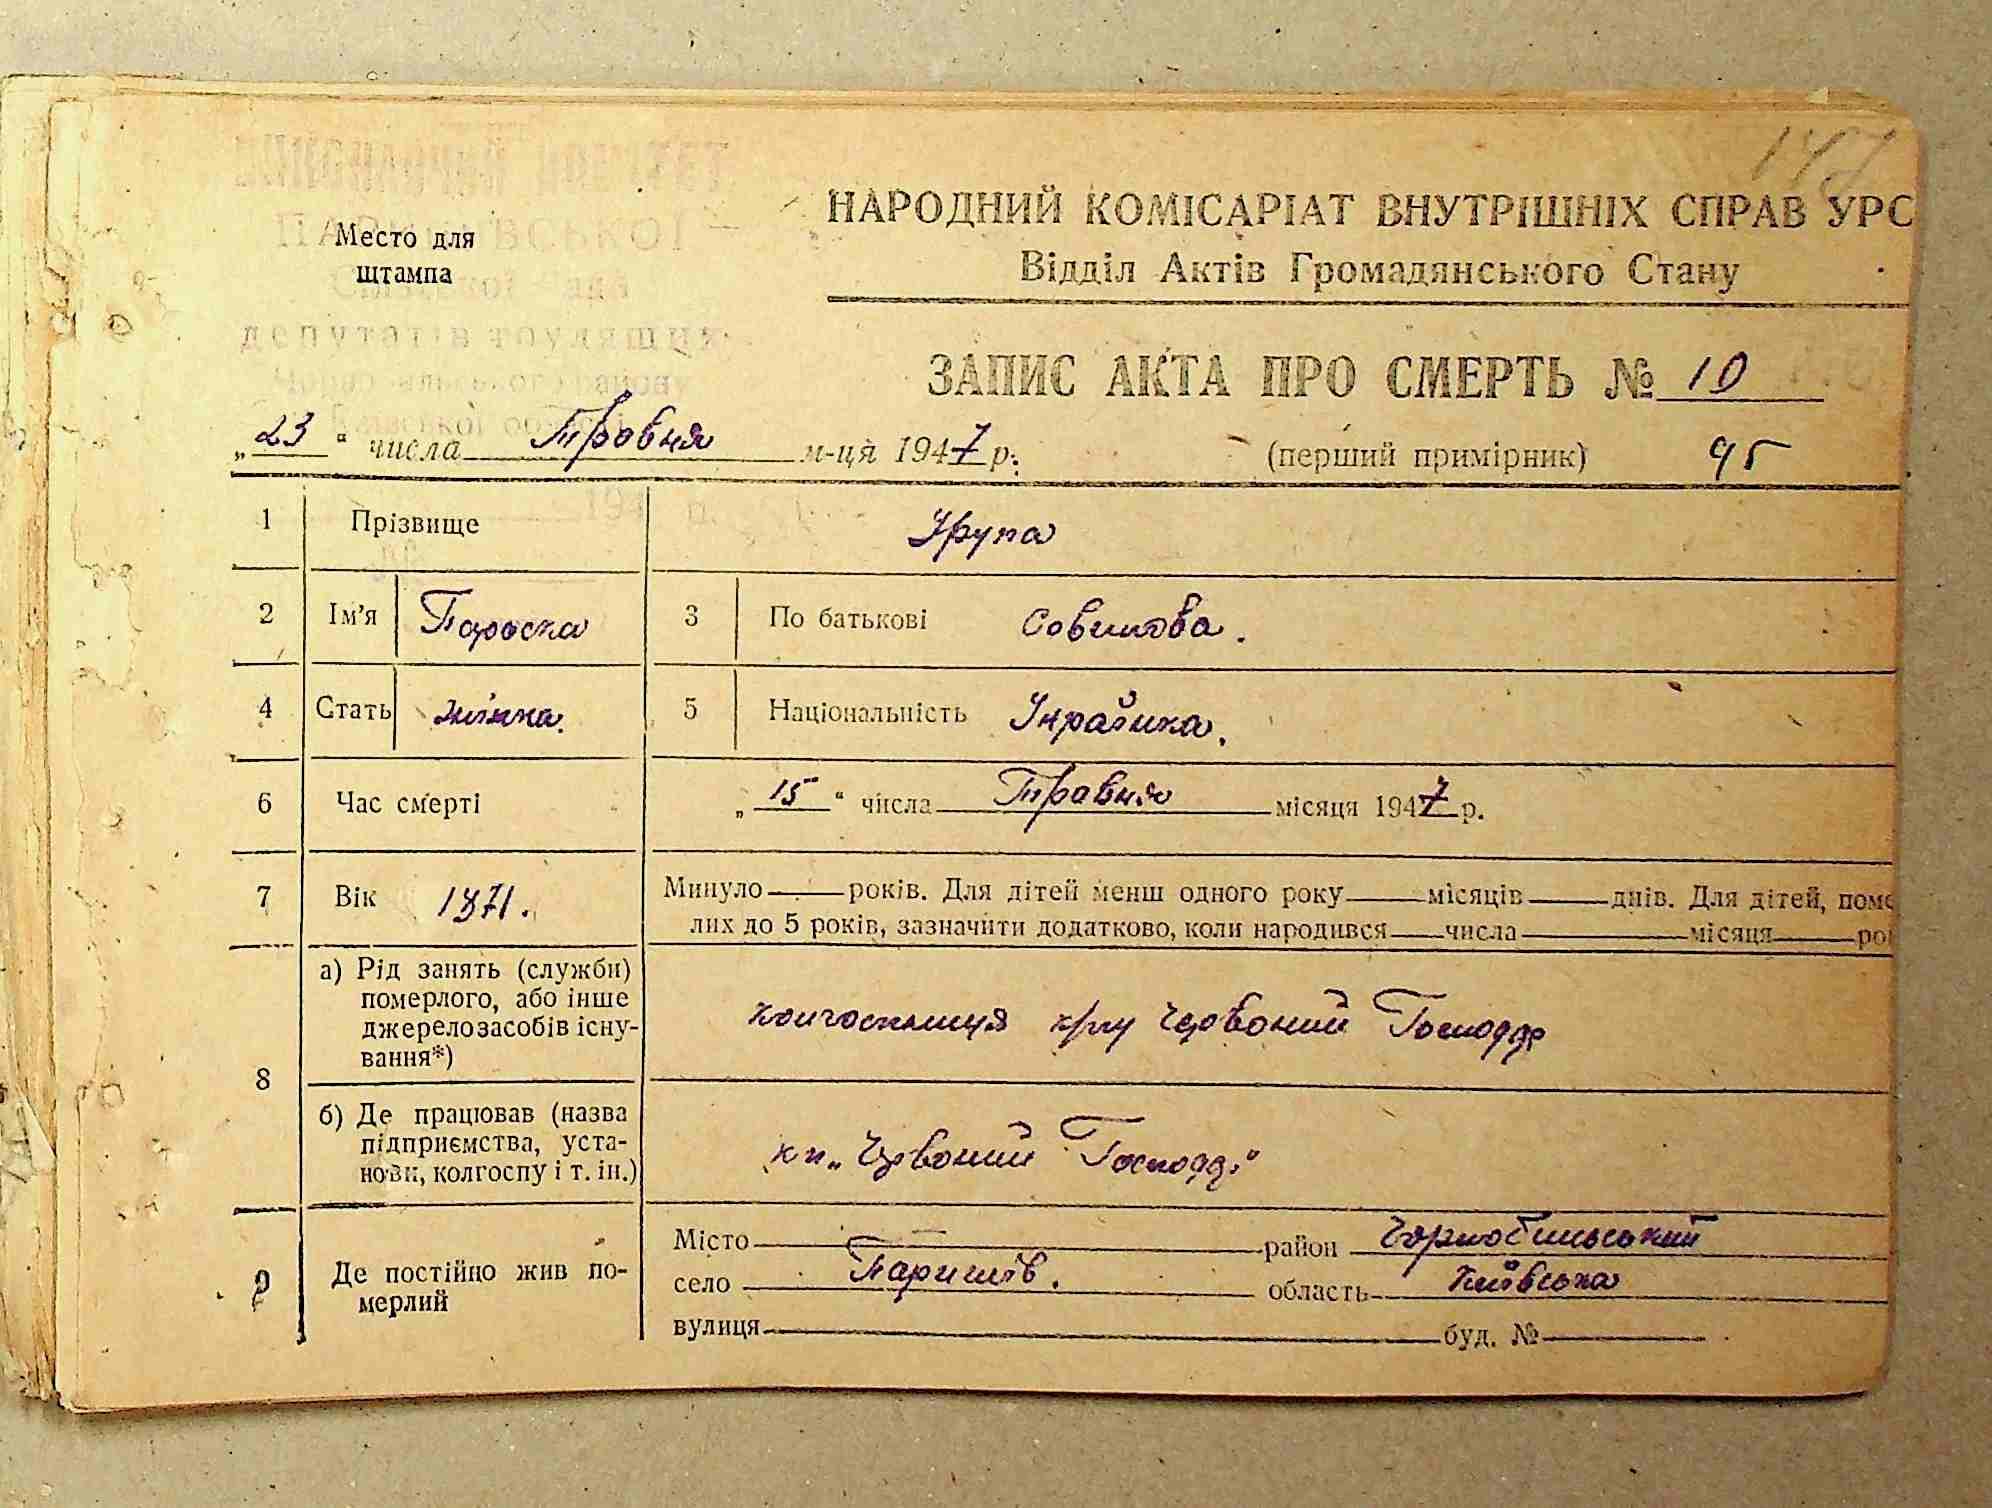 147
НАРОДНИЙ КОМІСАРІАТ ВНУТРІШНІХ СПРАВ УРС
Место для
штампа
Відділ Актів Громадянського Стану
депутатів трудящих
ЗАПИС АКТА ПРО СМЕРТЬ № 10
„23“ числа Травня м-ця 1947 р.
(перший примірник) 95
1 Прізвище Урупа
2 Ім'я Параска 3 По батькові Совимова.
4 Стать жінка. 5 Національність Украінка.
6 Час смерті „15“ числа Травня місяця 1947 р.
7 Вік 1871. Минуло років. Для дітей менш одного року місяців днів. Для дітей, поме
лих до 5 років, зазначити додатково, коли народився числа місяця ро
8 а) Рід занять (служби)
померлого, або інше
джерело засобів існу-
вання*)
колгоспниця к/пу Червоний Господар
б) Де працював (назва
підприємства, уста-
нови, колгоспу і т. ін.)
кп „Червоний Господар"
9 Де постійно жив по-
мерлий
Місто район Чорнобильський
село Паришів. область Київська
вулиця буд. №